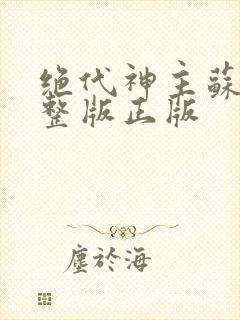 绝代神主蘇
整版正版
塵於海